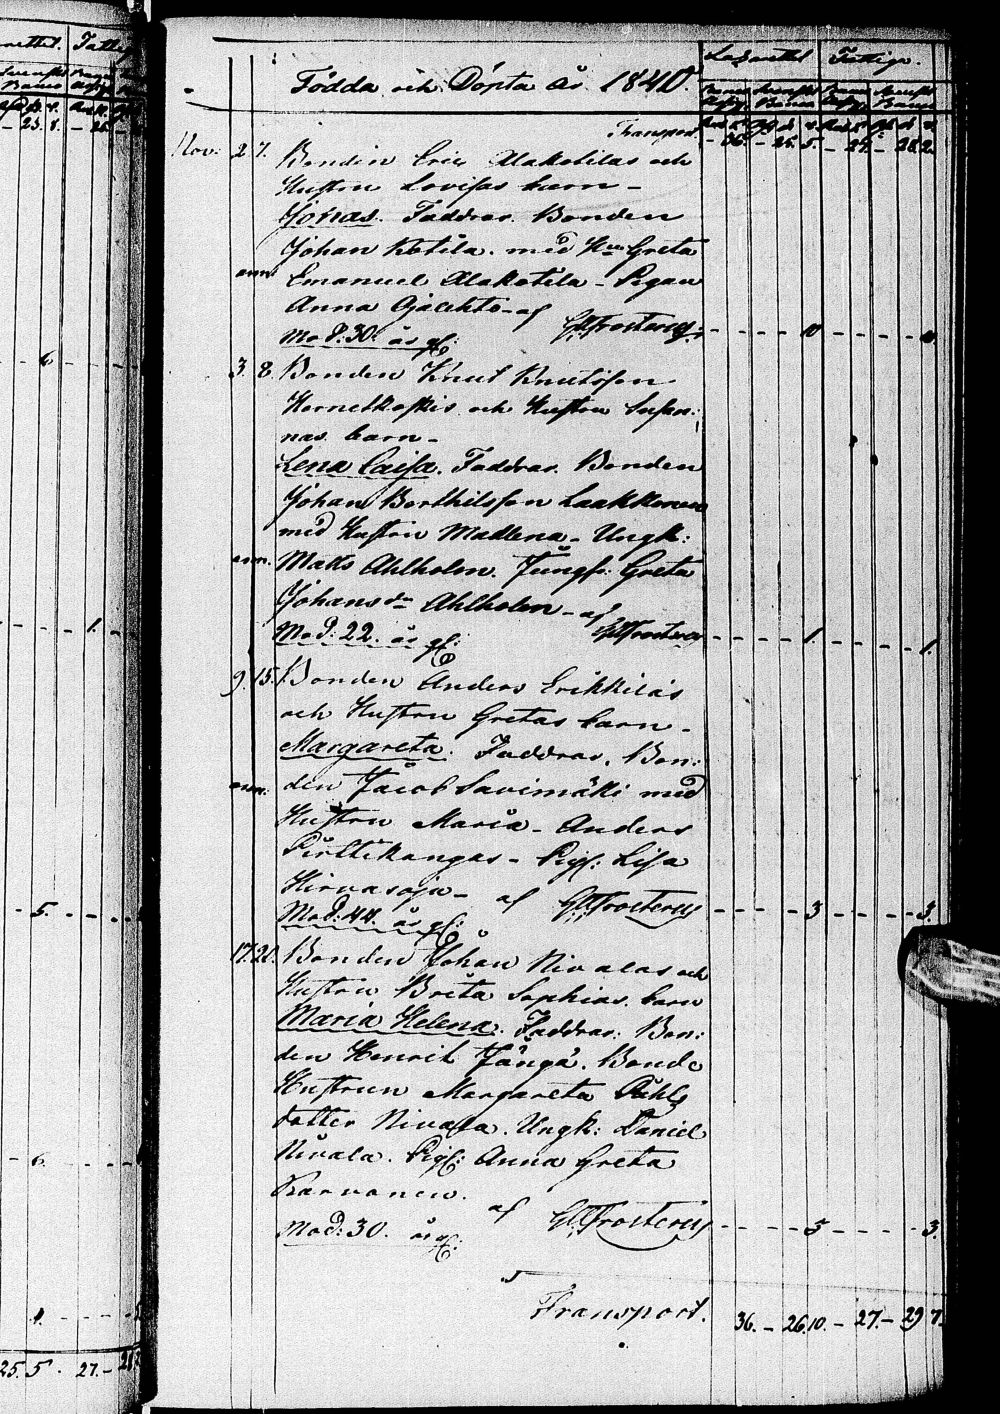 Lazarettet Fattiga.
Födda och Döpta År 1840.
Transport
36. - 25. 5. - 27. - 28. 2.
Nov: 2 7. Bonden Eric Alakotilas och
Hustru Lovisas barn -
Johas. Faddrar. Bonden
Johan Kotila. med Hu Greta
Emanuel Alakotila - Pigan
Anna Ojalehto - af
Mod: 30. års gl: GAFrosterus. 10 10
3. 8. Bonden Knut Knutsson
Hornetkoskis och Hustru Susan:
nas barn -
Lena Caisa. Faddrar. Bonden
Johan Berthilsson Laakkonen
med Hustru Madlena - Ungk:
Mats Ahlholm. Jungf: Greta
Johansdr Ahlholm - af
Mod: 22. års gl: Frosterus 1. 1.
9. 15. Bonden Anders Erikkiläs
och Hustru Gretas barn -
Margareta. Faddrar. Bon:
den Jacob Savimäki med
Hustru Maria - Anders
Pirttikangas - Pig: Lisa
Hirvasoja - af
Mod: 44. års gl: Frosterus 3 3.
17. 20. Bonden Johan Nivalas och
Hustru Brita Sophias barn
Maria Helena. Faddrar. Bon:
den Henric Jånga. Bonde
Hustrun Margareta Påhls
dotter Nivala. Ungk: Daniel
Nivala. Pig: Anna Greta
Karvonen.
af Frosterus 5 3.
Mod: 30. års gl:
Transport. 36. - 26. 10. - 27. - 29 7.
25. 5. 27. -